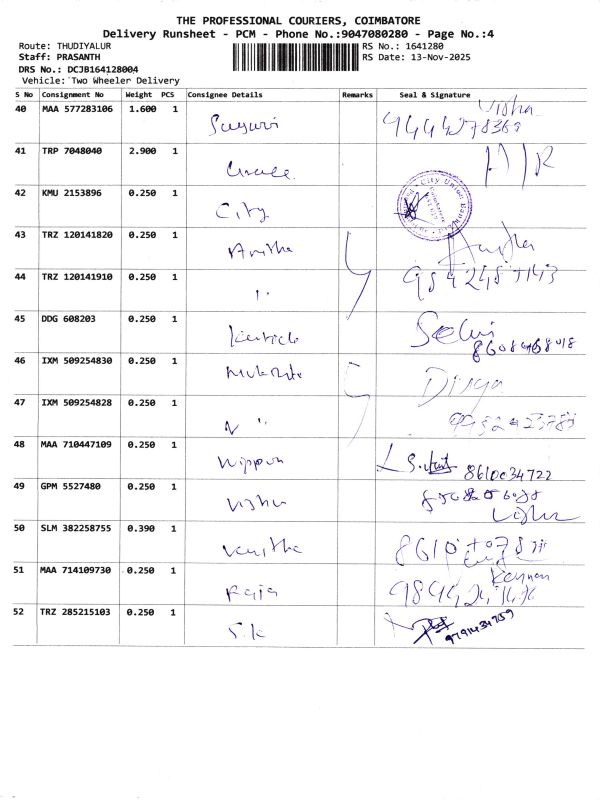 THE PROFESSIONAL COURIERS, COIMBATORE
Delivery Runsheet - PCM - Phone No.:9047080280 - Page No.:4
Route: THUDIYALUR RS No.: 1641280
Staff: PRASANTH RS Date: 13-Nov-2025
DRS No.: DCJB164128004
Vehicle: Two Wheeler Delivery
S No Consignment No Weight PCS Consignee Details Remarks Seal & Signature
40 MAA 577283106 1.600 1
41 TRP 7048040 2.900 1
42 KMU 2153896 0.250 1 City City Union Bank
43 TRZ 120141820 0.250 1 Anitha
44 TRZ 120141910 0.250 1 "
45 DDG 608203 0.250 1 Selvi
46 IXM 509254830 0.250 1 Divya
47 IXM 509254828 0.250 1 "
48 MAA 710447109 0.250 1 Nippon 8610034722
49 GPM 5527480 0.250 1 Vishnu
50 SLM 382258755 0.390 1 Vanitha
51 MAA 714109730 0.250 1 Raja
52 TRZ 285215103 0.250 1 S.K 9791434759